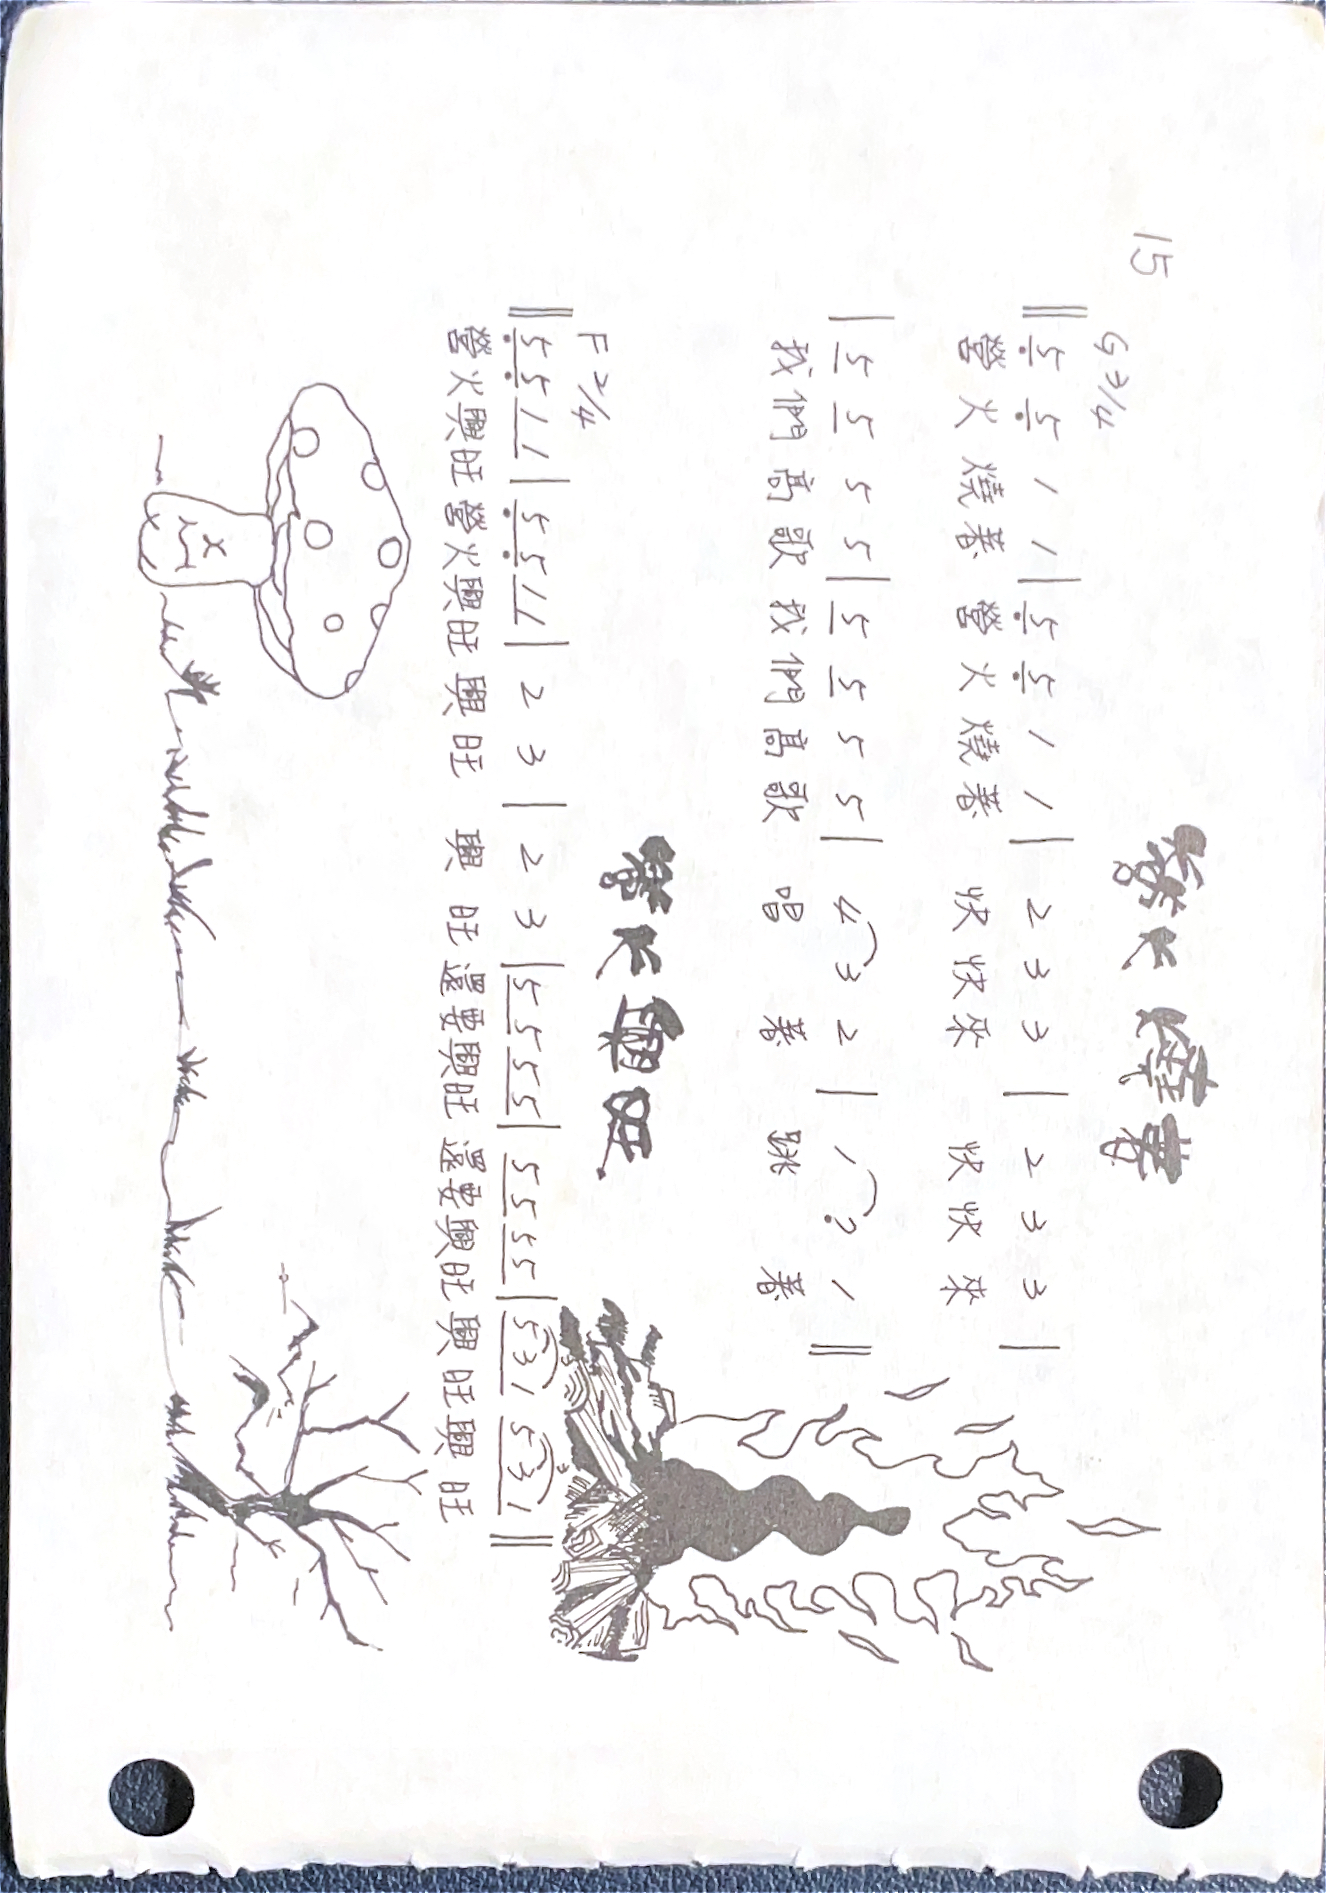 15
營火燒著
G 3/4
‖ 5̲̣ 5̲̣ 1 1 | 5̲̣ 5̲̣ 1 1 | 2 3 3 | 2 3 3 |
營火燒著 營火燒著 快快來 快快來
| 5̲ 5̲ 5 5 | 5̲ 5̲ 5 5 | 4 3 2 | 1 7̣ 1 ‖
我們高歌 我們高歌 唱 著 跳 著
營火興旺
F 2/4
‖ 5̲̣ 5̲̣ 1̲ 1̲ | 5̲̣ 5̲̣ 1̲ 1̲ | 2 3 | 2 3 | 5̲ 5̲ 5̲ 5̲ | 5̲ 5̲ 5̲ 5̲ | 3 5̲ 3̲ 1̲ 3 5̲ 3̲ 1̲ ‖
營火興旺 營火興旺 興旺 興旺 還要興旺 還要興旺 興旺興旺